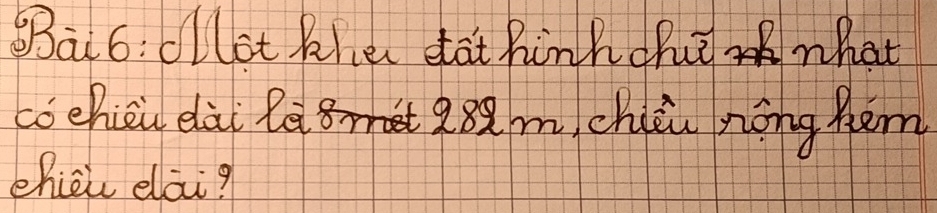 Bài 6: Một khu đất hình chữ nhật
có chiều dài là 282 m, chiều rộng kém
chiều dài?